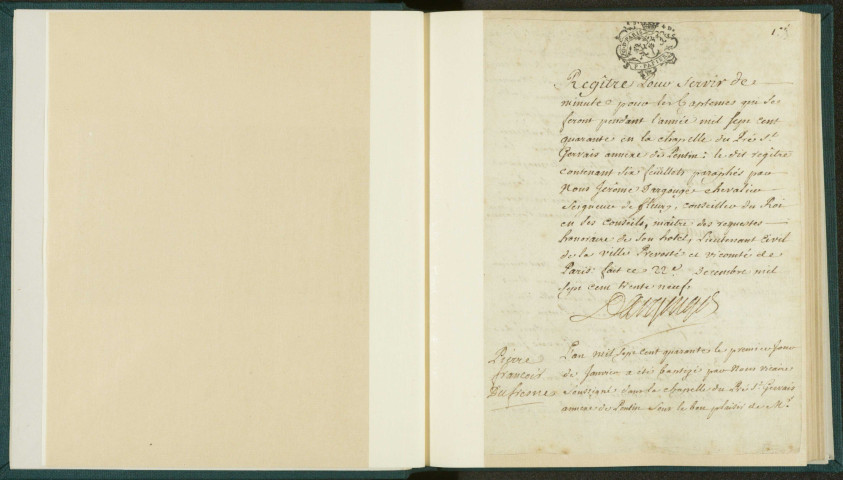 1er
Registre pour servir de
minute pour les baptemes qui se
feront pendant l'année mil sept cent
quarante en la chapelle du Pré St
Gervais annexe de Pentin: le dit registre
contenant six feuillets paraphés par
Nous Jerôme Dargouges chevalier
seigneur de fleury, conseiller du Roi
en ses conseils, maître des requestes
honoraire de son hotel, Lieutenant Civil
de la ville Prevosté et vicomté de
Paris: fait ce 22e. Decembre mil
sept cent trente neuf
Dargouges
Pierre
francois
Dufresne
L'an mil sept cent quarante le premier jour
de Janvier a été baptisé par Nous vicaire
soussigné dans la chapelle du Pré St Gervais
annexe de Pentin sous le bon plaisir de Mr